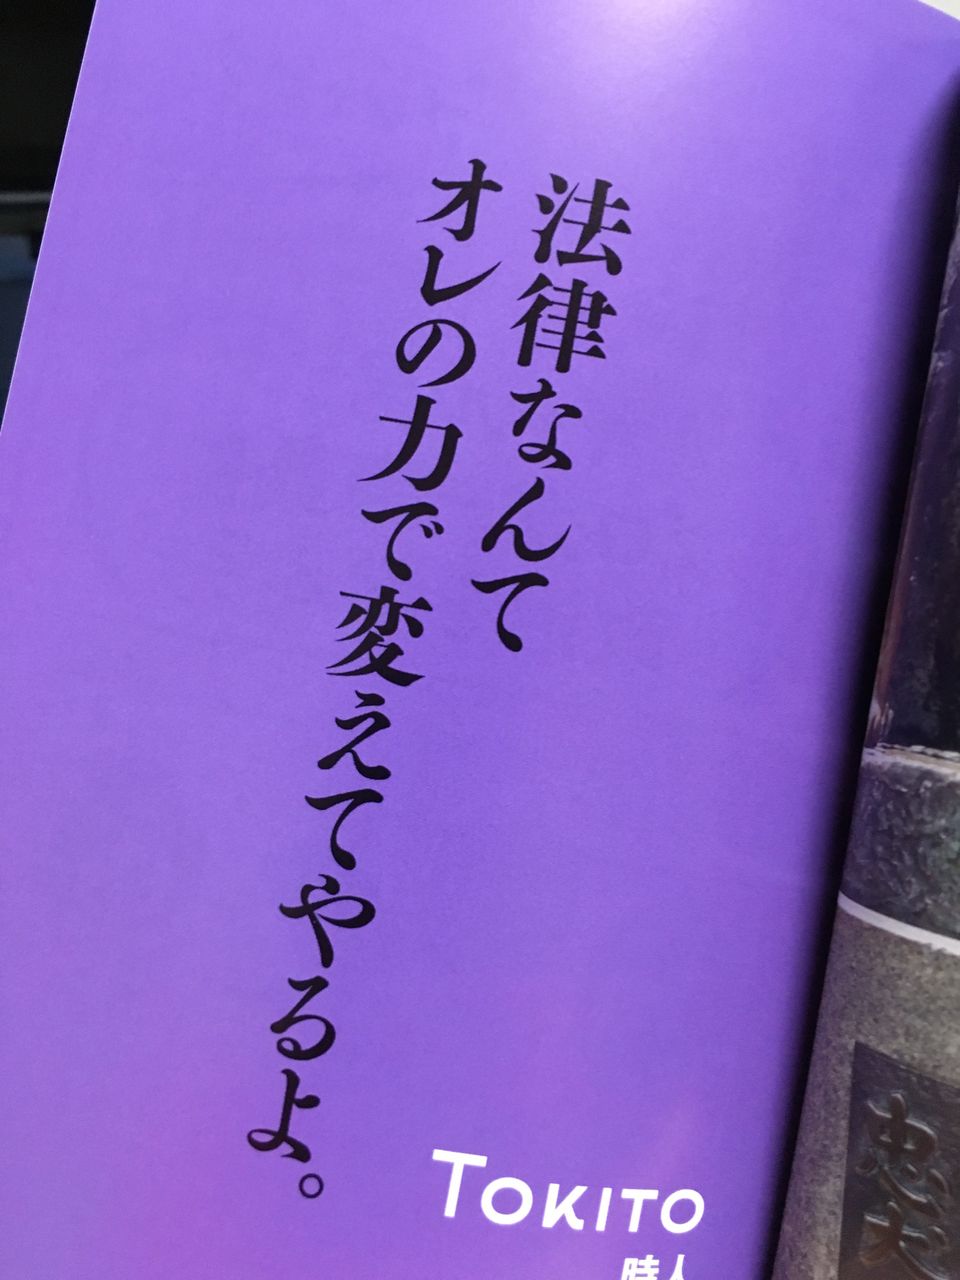 法律なんて
オレの力で変えてやるよ。
TOKITO
時人
忠犬